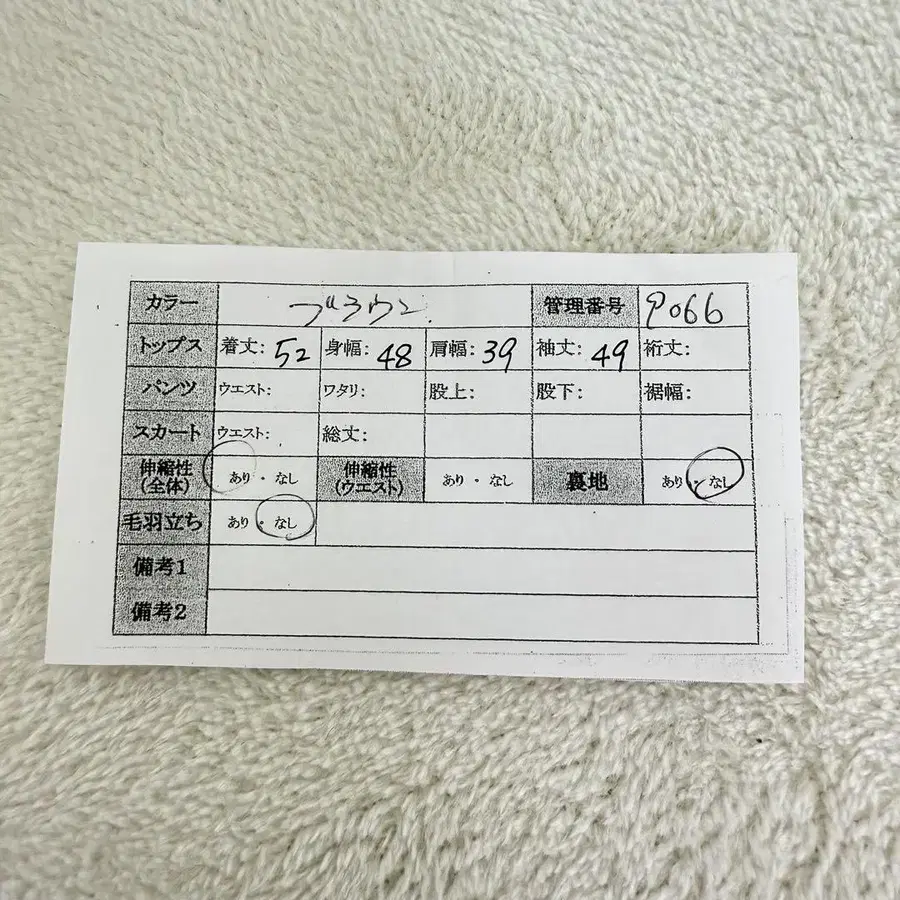 カラー ブラウン. 管理番号 P066
トップス 着丈: 52 身幅: 48 肩幅: 39 袖丈: 49 裄丈:
パンツ ウエスト: ワタリ: 股上: 股下: 裾幅:
スカート ウエスト: 総丈:
伸縮性(全体) あり・なし 伸縮性(ウエスト) あり・なし 裏地 あり・なし
毛羽立ち あり・なし
備考1
備考2